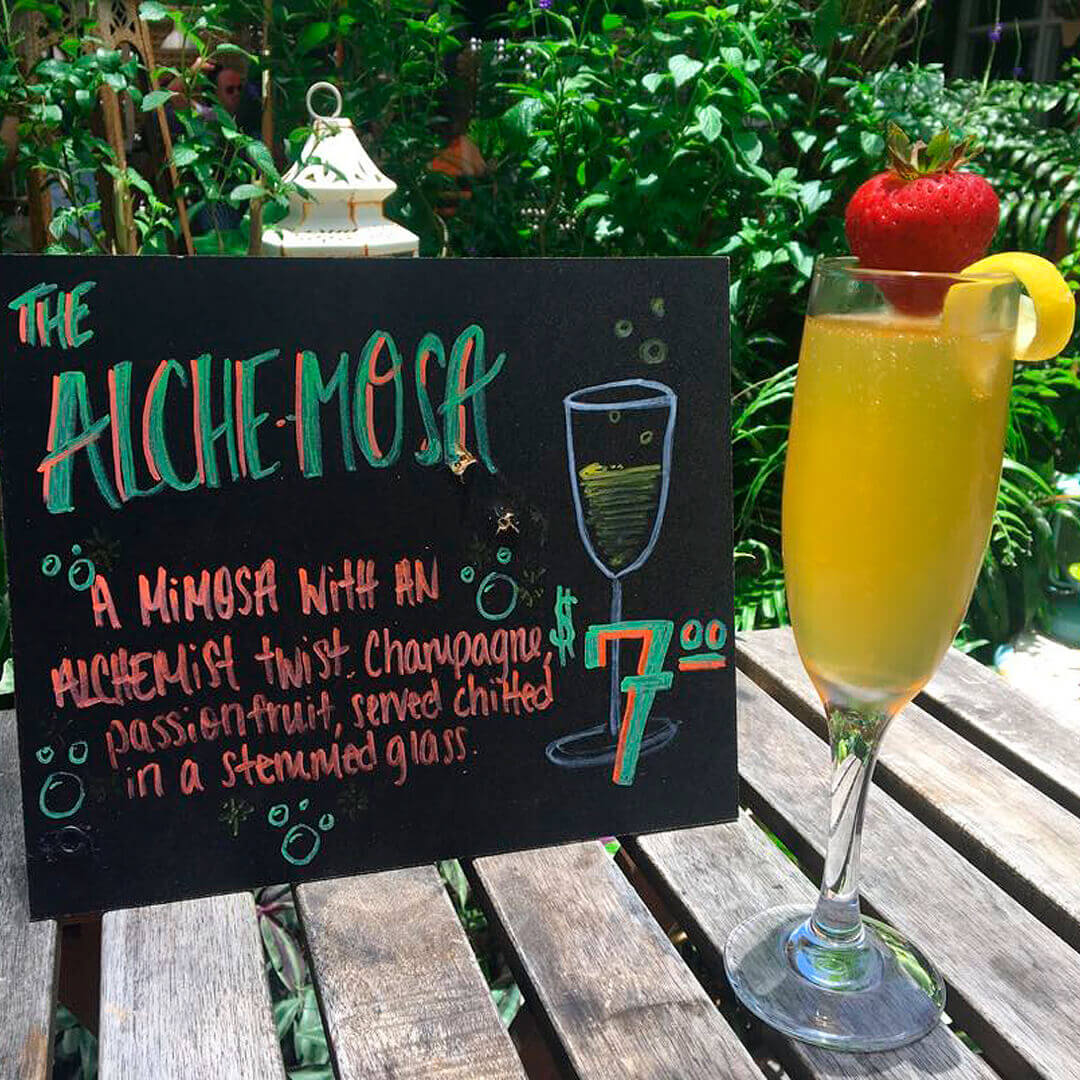 THE
ALCHE-MOSA
A MiMOSA WitH AN
ALCHEMiSt twist. Champagne,
passionfruit, served chilled
in a stemmed glass.
$7.00